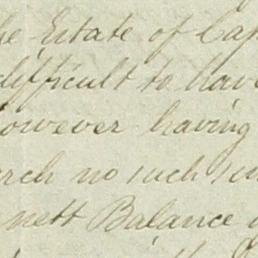 he Estate of Cap
difficult to have
however having
rch no such su
nett Balance